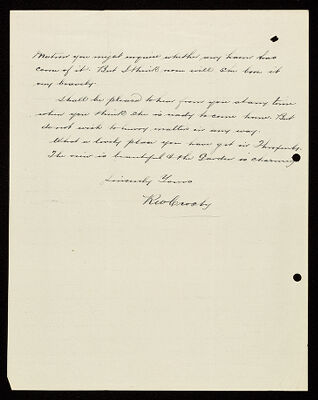 Matron you might inquire whether any harm has
come of it. But I think now will can bear it
very bravely.
Shall be pleased to hear from you at any time
when you think she is ready to come home. But
do not wish to hurry matters in any way.
What a lovely place you have got in
The view is beautiful & the Garden is charming
Sincerely Yours
Crosby